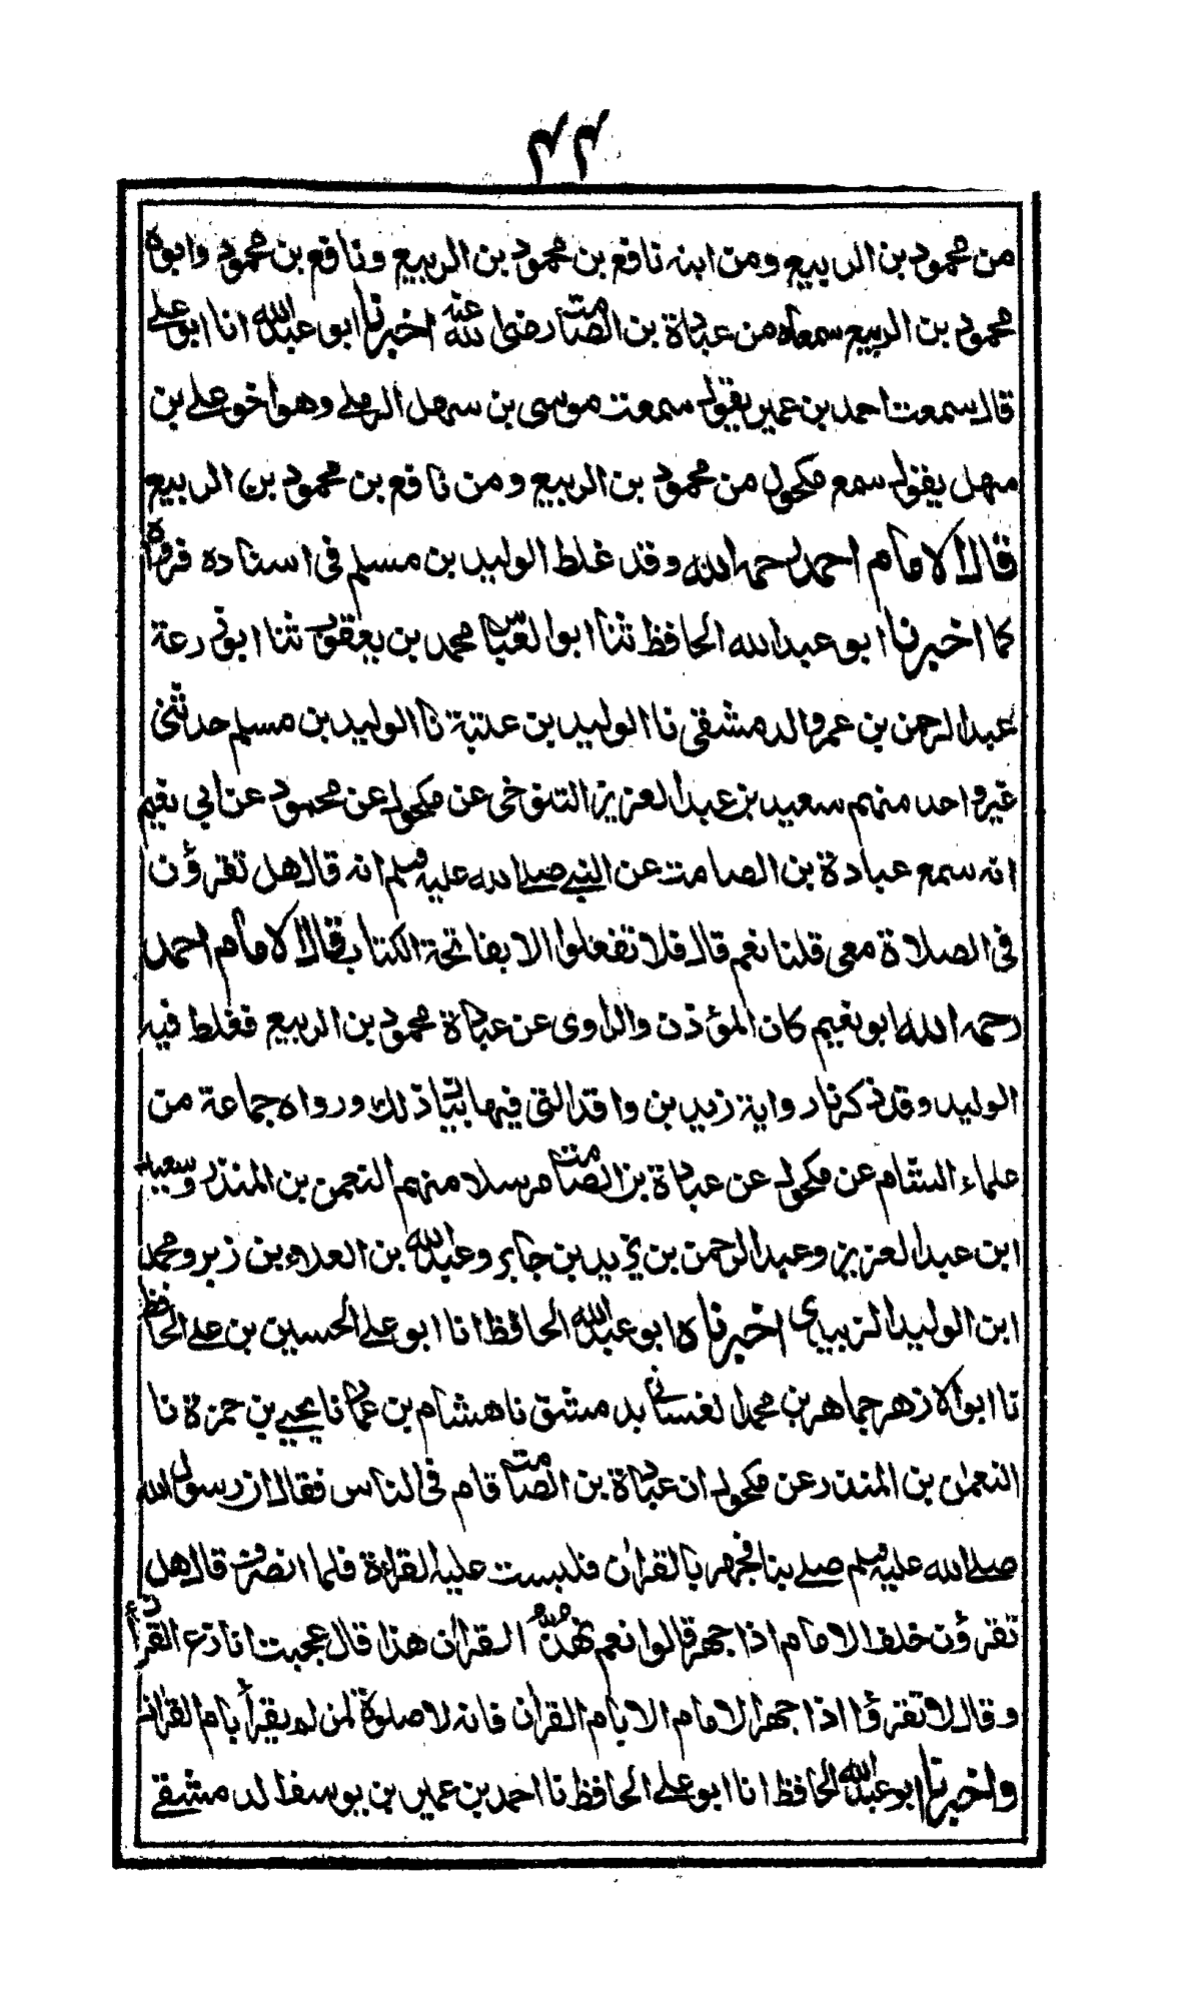 ٤٤
من محمود بن الربيع ومن ابنه نافع بن محمود بن الربيع ونافع بن محمود وابوه
محمود بن الربيع سمعاه من عبادة بن الصامت رضى الله عنه اخبرنا ابو عبد الله انا ابو على
قال سمعت احمد بن عمير يقول سمعت موسى بن سهل الرملى وهو اخو على بن
سهل يقول سمع مكحول من محمود بن الربيع ومن نافع بن محمود بن الربيع
قال الامام احمد رحمه الله وقد غلط الوليد بن مسلم فى اسناده فرواه
كما اخبرنا ابو عبد الله الحافظ ثنا ابو العباس محمد بن يعقوب ثنا ابو زرعة
عبد الرحمن بن عمرو الدمشقى نا الوليد بن عتبة نا الوليد بن مسلم حدثنى
غير واحد منهم سعيد بن عبد العزيز التنوخى عن مكحول عن محمود عن ابي نعيم
انه سمع عبادة بن الصامت عن النبي صلى الله عليه وسلم انه قال هل تقرؤن
فى الصلاة معى قلنا نعم قال فلا تفعلوا الا بفاتحة الكتاب قال الامام احمد
رحمه الله ابو نعيم كان المؤذن والراوى عن عبادة محمود بن الربيع فغلط فيه
الوليد وقد ذكرنا رواية زيد بن واقد التى فيها بيان ذلك ورواه جماعة من
علماء الشام عن مكحول عن عبادة بن الصامت مرسلا منهم النعمن بن المنذر وسعيد
ابن عبد العزيز وعبد الرحمن بن يزيد بن جابر وعبد الله بن العلاء بن زبر ومحمد
ابن الوليد الزبيدى اخبرناه ابو عبد الله الحافظ انا ابو على الحسين بن على الحافظ
نا ابو الازهر جماهر بن محمد الغسانى بدمشق نا هشام بن عمار نا يحيى بن حمزة نا
النعمن بن المنذر عن مكحول ان عبادة بن الصامت قام فى الناس فقال ان رسول الله
صلى الله عليه وسلم صلى بنا فجهر بالقران فلبست عليه القراءة فلما انصرف قال هل
تقرؤن خلف الامام اذا جهر قالوا نعم نهذ القران هذا قال عجبت انا زع القران
وقال لا تقرؤا اذا جهر الامام الا بام القران فانه لا صلوة لمن لم يقرأ بام القران
واخبرنا ابو عبد الله الحافظ انا ابو على الحافظ نا احمد بن عمير بن يوسف الدمشقى